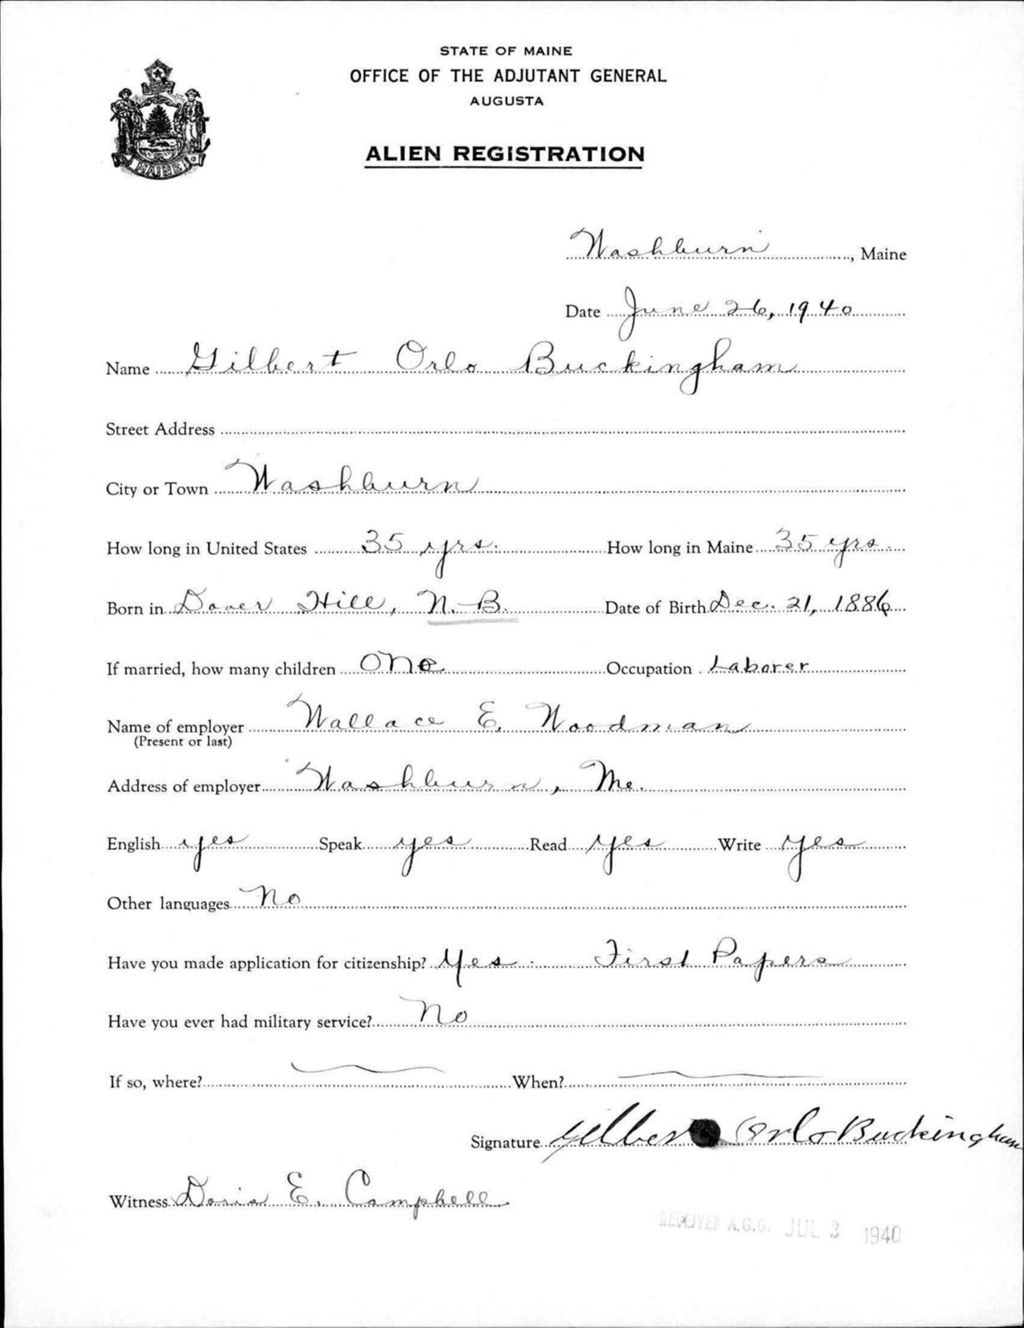 STATE OF MAINE
OFFICE OF THE ADJUTANT GENERAL
AUGUSTA
ALIEN REGISTRATION
MAINE
Washburn, Maine
Date June 26, 1940
Name Gilbert Orlo Buckingham
Street Address
City or Town Washburn
How long in United States 35 yrs. How long in Maine 35 yrs.
Born in Dover Hill, N.B. Date of Birth Dec. 21, 1886
If married, how many children One Occupation Laborer
Name of employer Wallace E. Woodman
(Present or last)
Address of employer Washburn, Me.
English yes Speak yes Read yes Write yes
Other languages No
Have you made application for citizenship? Yes. First Papers
Have you ever had military service? No
If so, where? When?
Signature Gilbert Orlo Buckingham
Witness Doris E. Campbell
RECEIVED A.G.O. JUL 3 1940